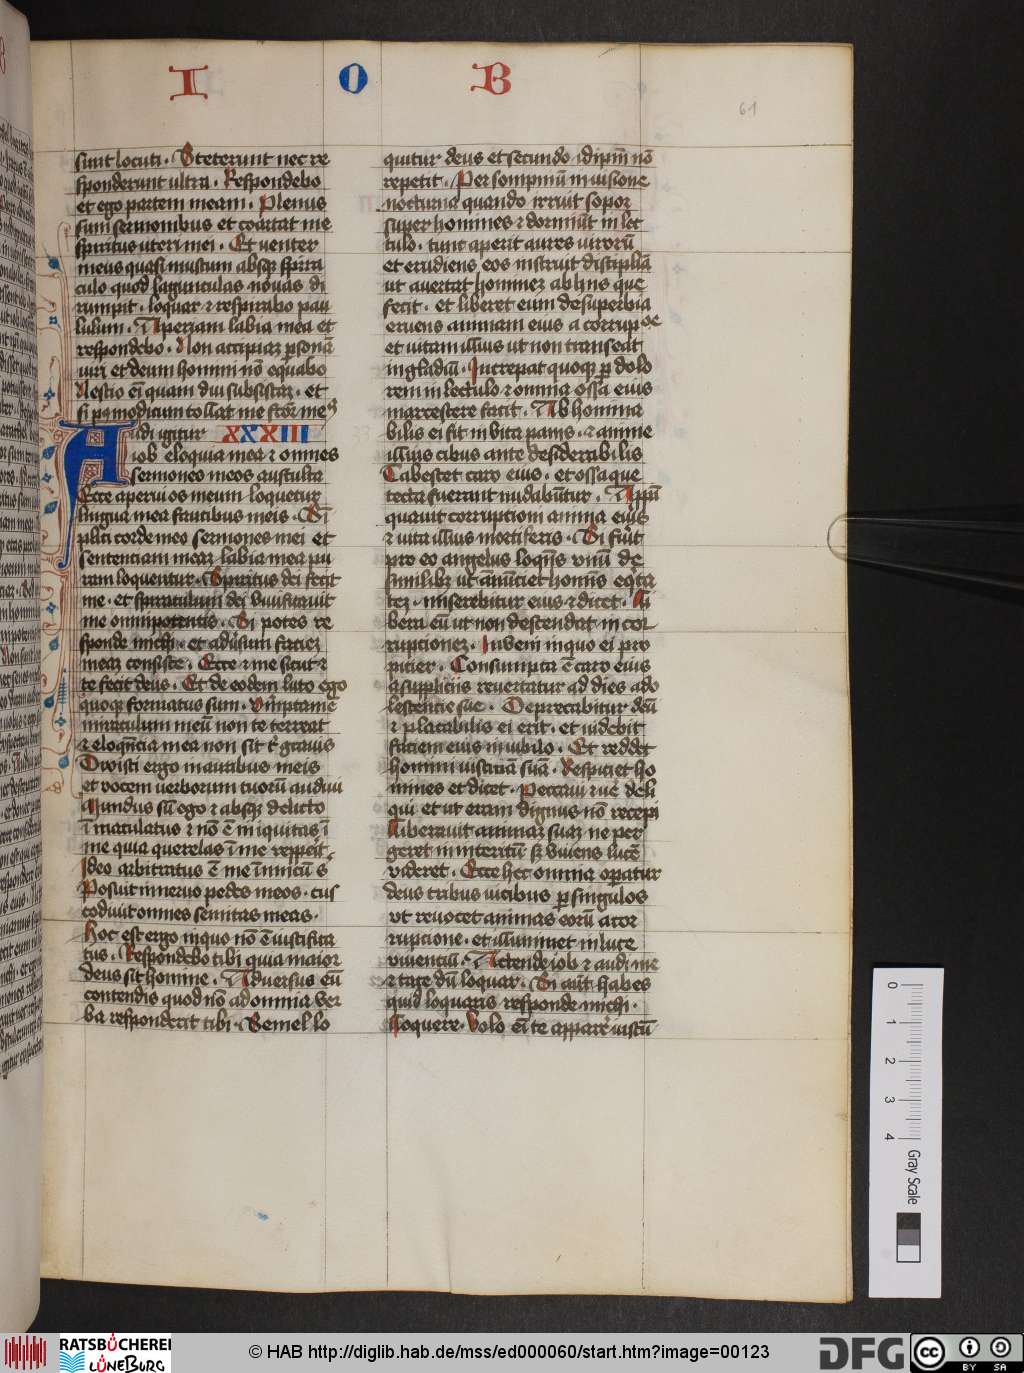 I O B
61
sunt locuti. Steterunt nec re
sponderunt ultra. Respondebo
et ego partem meam. Plenus
sum sermonibus et coartat me
spiritus uteri mei. Et venter
meus quasi mustum absqz spira
culo quod lagunculas nouas di
rumpit. loquar ⁊ respirabo pau
lulum. Aperiam labia mea et
respondebo. Non accipiaz psonā
viri et deum homini nō equabo
Nestio ei̅ quam diu subsistaz. et
si modicum tollat me factor meꝰ
Audi igitur XXXIII
iob eloquia mea ⁊ omnes
sermones meos austulta
Ecce aperui os meum loquetur
lingua mea faucibus meis. Si
plici corde meo sermones mei et
sententiam meaz labia mea pu
ram loquentur. Spiritus dei fecit
me. et spiraculum dei viuificauit
me omnipotentis. Si potes re
sponde michi. et adūsum faciez
meaz consiste. Ecce ⁊ me sicut ⁊
te fecit deus. Et de eodem luto ego
quoqz formatus sum. Vūptamē
miraculum meū non te terreat
⁊ eloqn̄cia mea non sit t͛ grauis
Dixisti ergo in auribus meis
et vocem verborum tuorū audiui
Mundus sū ego ⁊ absqz delicto
ī maculatus ⁊ nō ē iniquitas ī
me quia querelas ī me repperit
Ideo arbitratus ē me īimicū s̄
Posuit in neruo pedes meos. cus
todiuit omnes semitas meas.
Hoc est ergo in quo nō ē iustifica
tus. Respondebo tibi quia maior
deus sit homine. Aduersus eū
contendis quod nō ad omnia ver
ba responderit tibi. Semel lo
quitur deus et secundo idipm̄ nō
repetit. Per sompniū in visione
nocturna quando irruit sopor
super homines ⁊ dormiūt in lec
tulo. tunc aperit aures virorū
et erudiens eos instruit disciplīa
ut auertat hominez ab hijs que
fecit. et liberet eum de superbia
eruens animam eius a corrupoe
et vitam illius ut non transeat
in gladiū. Increpat quoqz ꝑ dolo
rem in lectulo ⁊ omnia ossa eius
marcestere facit. Abhomina
bilis ei fit in vita panis. ⁊ anime
illius cibus ante desiderabilis
Tabescet caro eius. et ossa que
tecta fuerant nudabūtur. Appī
quauit corrupcioni anima eius
⁊ vita illius mortiferis. Si fūit
pro eo angelus loqn̄s vnū de
similibz ut ān̄unciet homīs eq͛ta
tez. miserebitur eius ⁊ dicet. Li
bera eū ut non descendat in cor
rupcionez. Inueni in quo ei pro
picier. Consumpta ē caro eius
a supplicijs reuertatur ad dies ado
lescencie sue. Deprecabitur deū
⁊ placabilis ei erit. et videbit
faciem eius in iubilo. Et reddet
homini iusticiā suā. Respiciet ho
mines et dicet. Peccaui ⁊ ve͛ deli
qui et ut eram dignus nō recepi
Liberauit animaz suaz ne per
geret in interitū sz viuens lucē
videret. Ecce hec omnia opatur
deus tribus vicibus ꝑ singulos
vt reuocet animas eorū a cor
rupcione. et illuminet in luce
viuenciū. Attende iob ⁊ audi me
⁊ tace dū loquar. Si aūt habes
quid loquaris responde michi.
Loquere. Volo ei̅ te apparē iustū
0 1 2 3 4
Gray Scale
RATSBÜCHEREI
LÜNEBURG
© HAB http://diglib.hab.de/mss/ed000060/start.htm?image=00123
DFG
CC BY SA